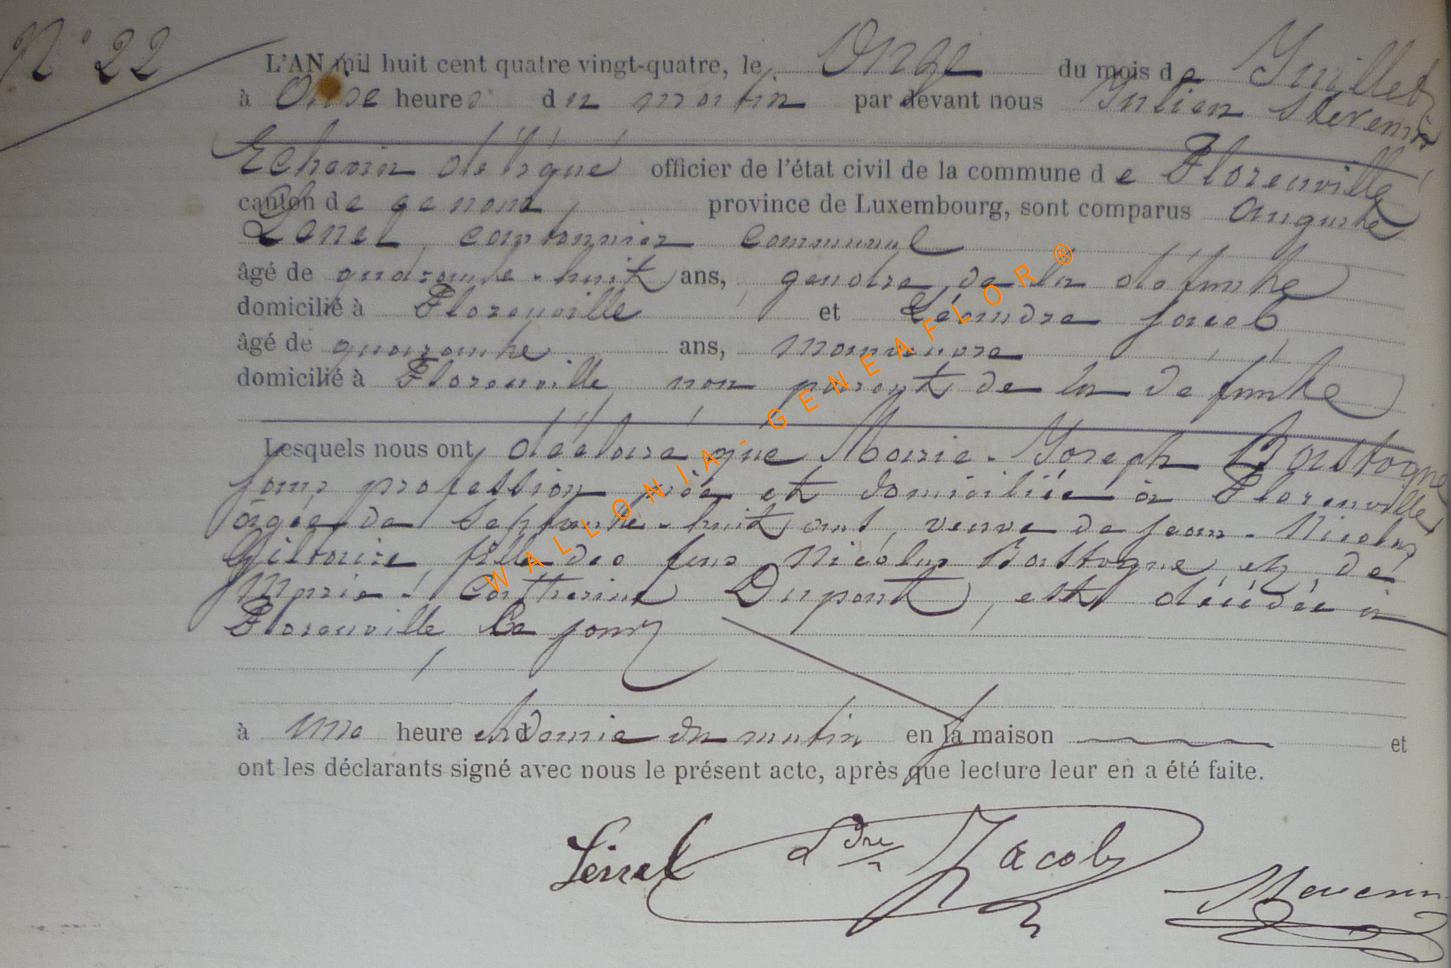 N° 22
L'AN mil huit cent quatre vingt-quatre, le Onze du mois de Juillet
à Onze heures du matin par devant nous Julien Stevenin
Echevin délégué officier de l'état civil de la commune de Florenville
canton de province de Luxembourg, sont comparus Auguste
cantonnier communal
âgé de quarante-huit ans, gendre de la défunte
domicilié à Florenville et Léandre Jacob
âgé de quarante ans, manoeuvre
domicilié à Florenville non parent de la défunte
Lesquels nous ont déclaré que Marie-Joseph Bastogne
sans profession née et domiciliée à Florenville
âgée de septante-huit ans, veuve de Jean-Nicolas
fille des feus Nicolas Bastogne et de
Marie-Catherine Dupont, est décédée à
Florenville ce jour
à une heure et demie du matin en sa maison et
ont les déclarants signé avec nous le présent acte, après que lecture leur en a été faite.
Ldre Jacob
Stevenin
WALLONIA-GENEAFLOR®